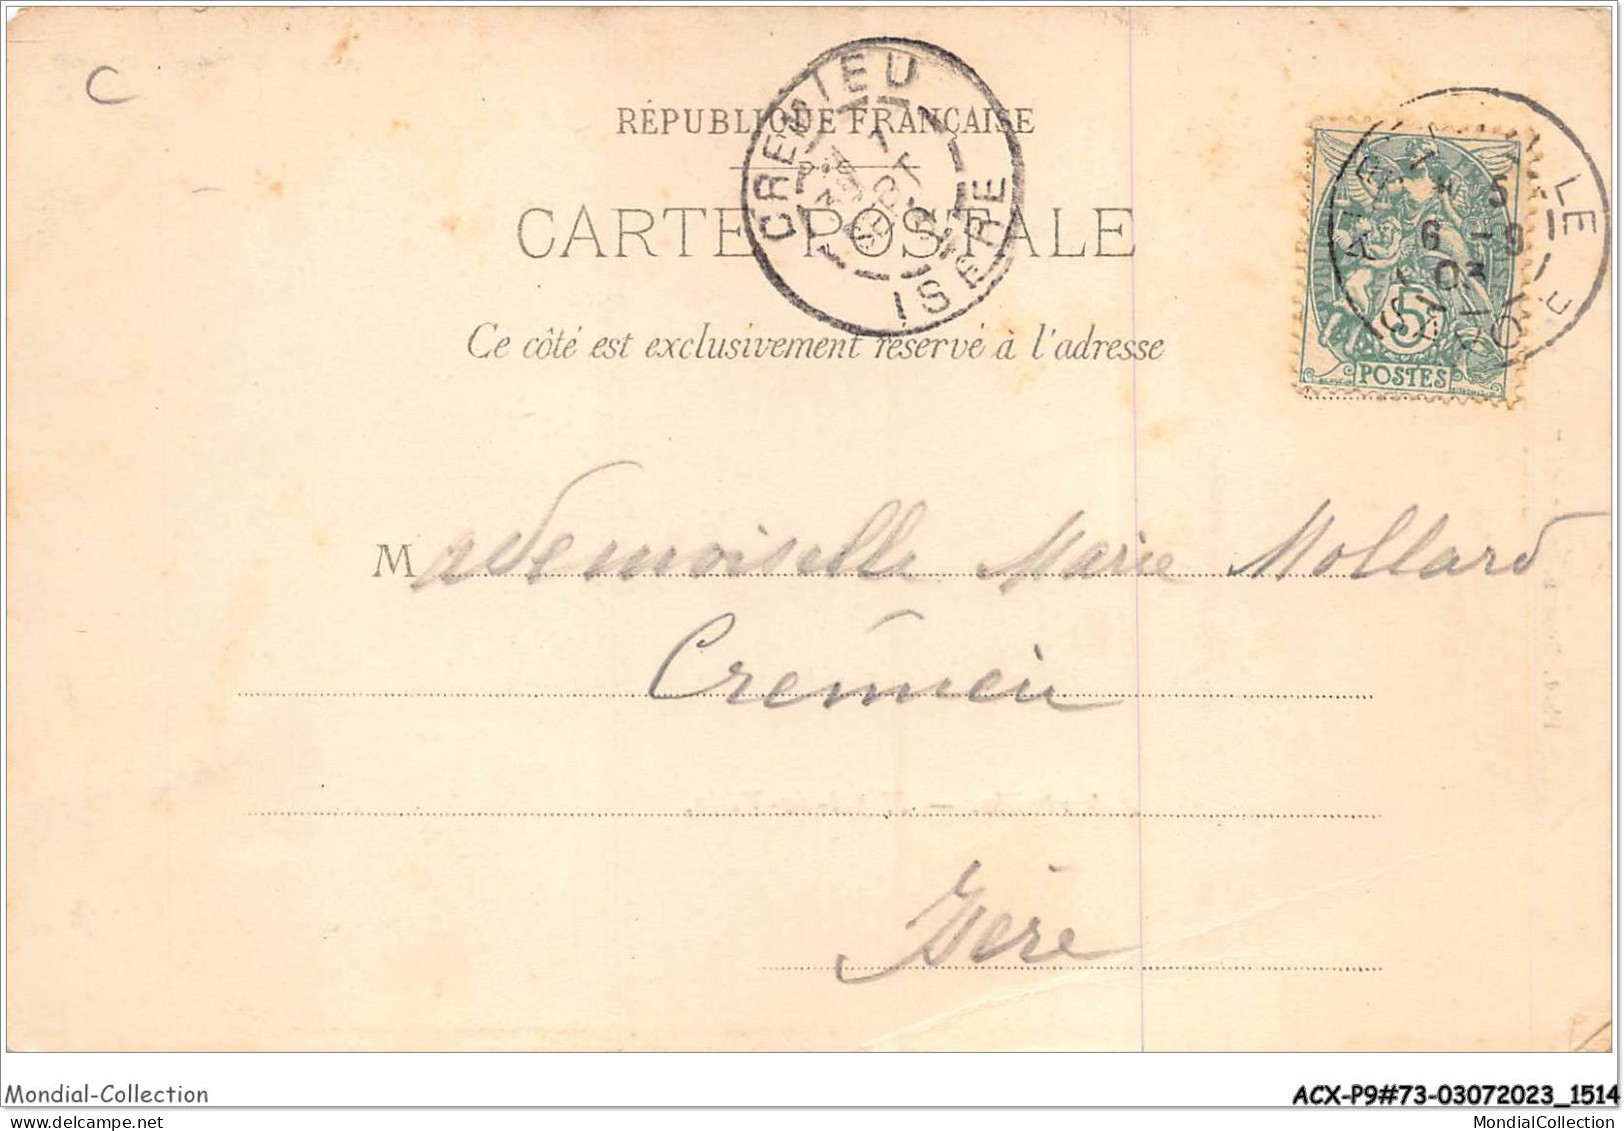 C
RÉPUBLIQUE FRANÇAISE
CARTE POSTALE
Ce côté est exclusivement réservé à l'adresse
CREMIEU
7
SEPT
ISERE
LE
6 - 9
03
5
POSTES
Mademoiselle Marie Mollard
Crémieu
Isère
Mondial-Collection
ACX-P9#73-03072023_1514
MondialCollection